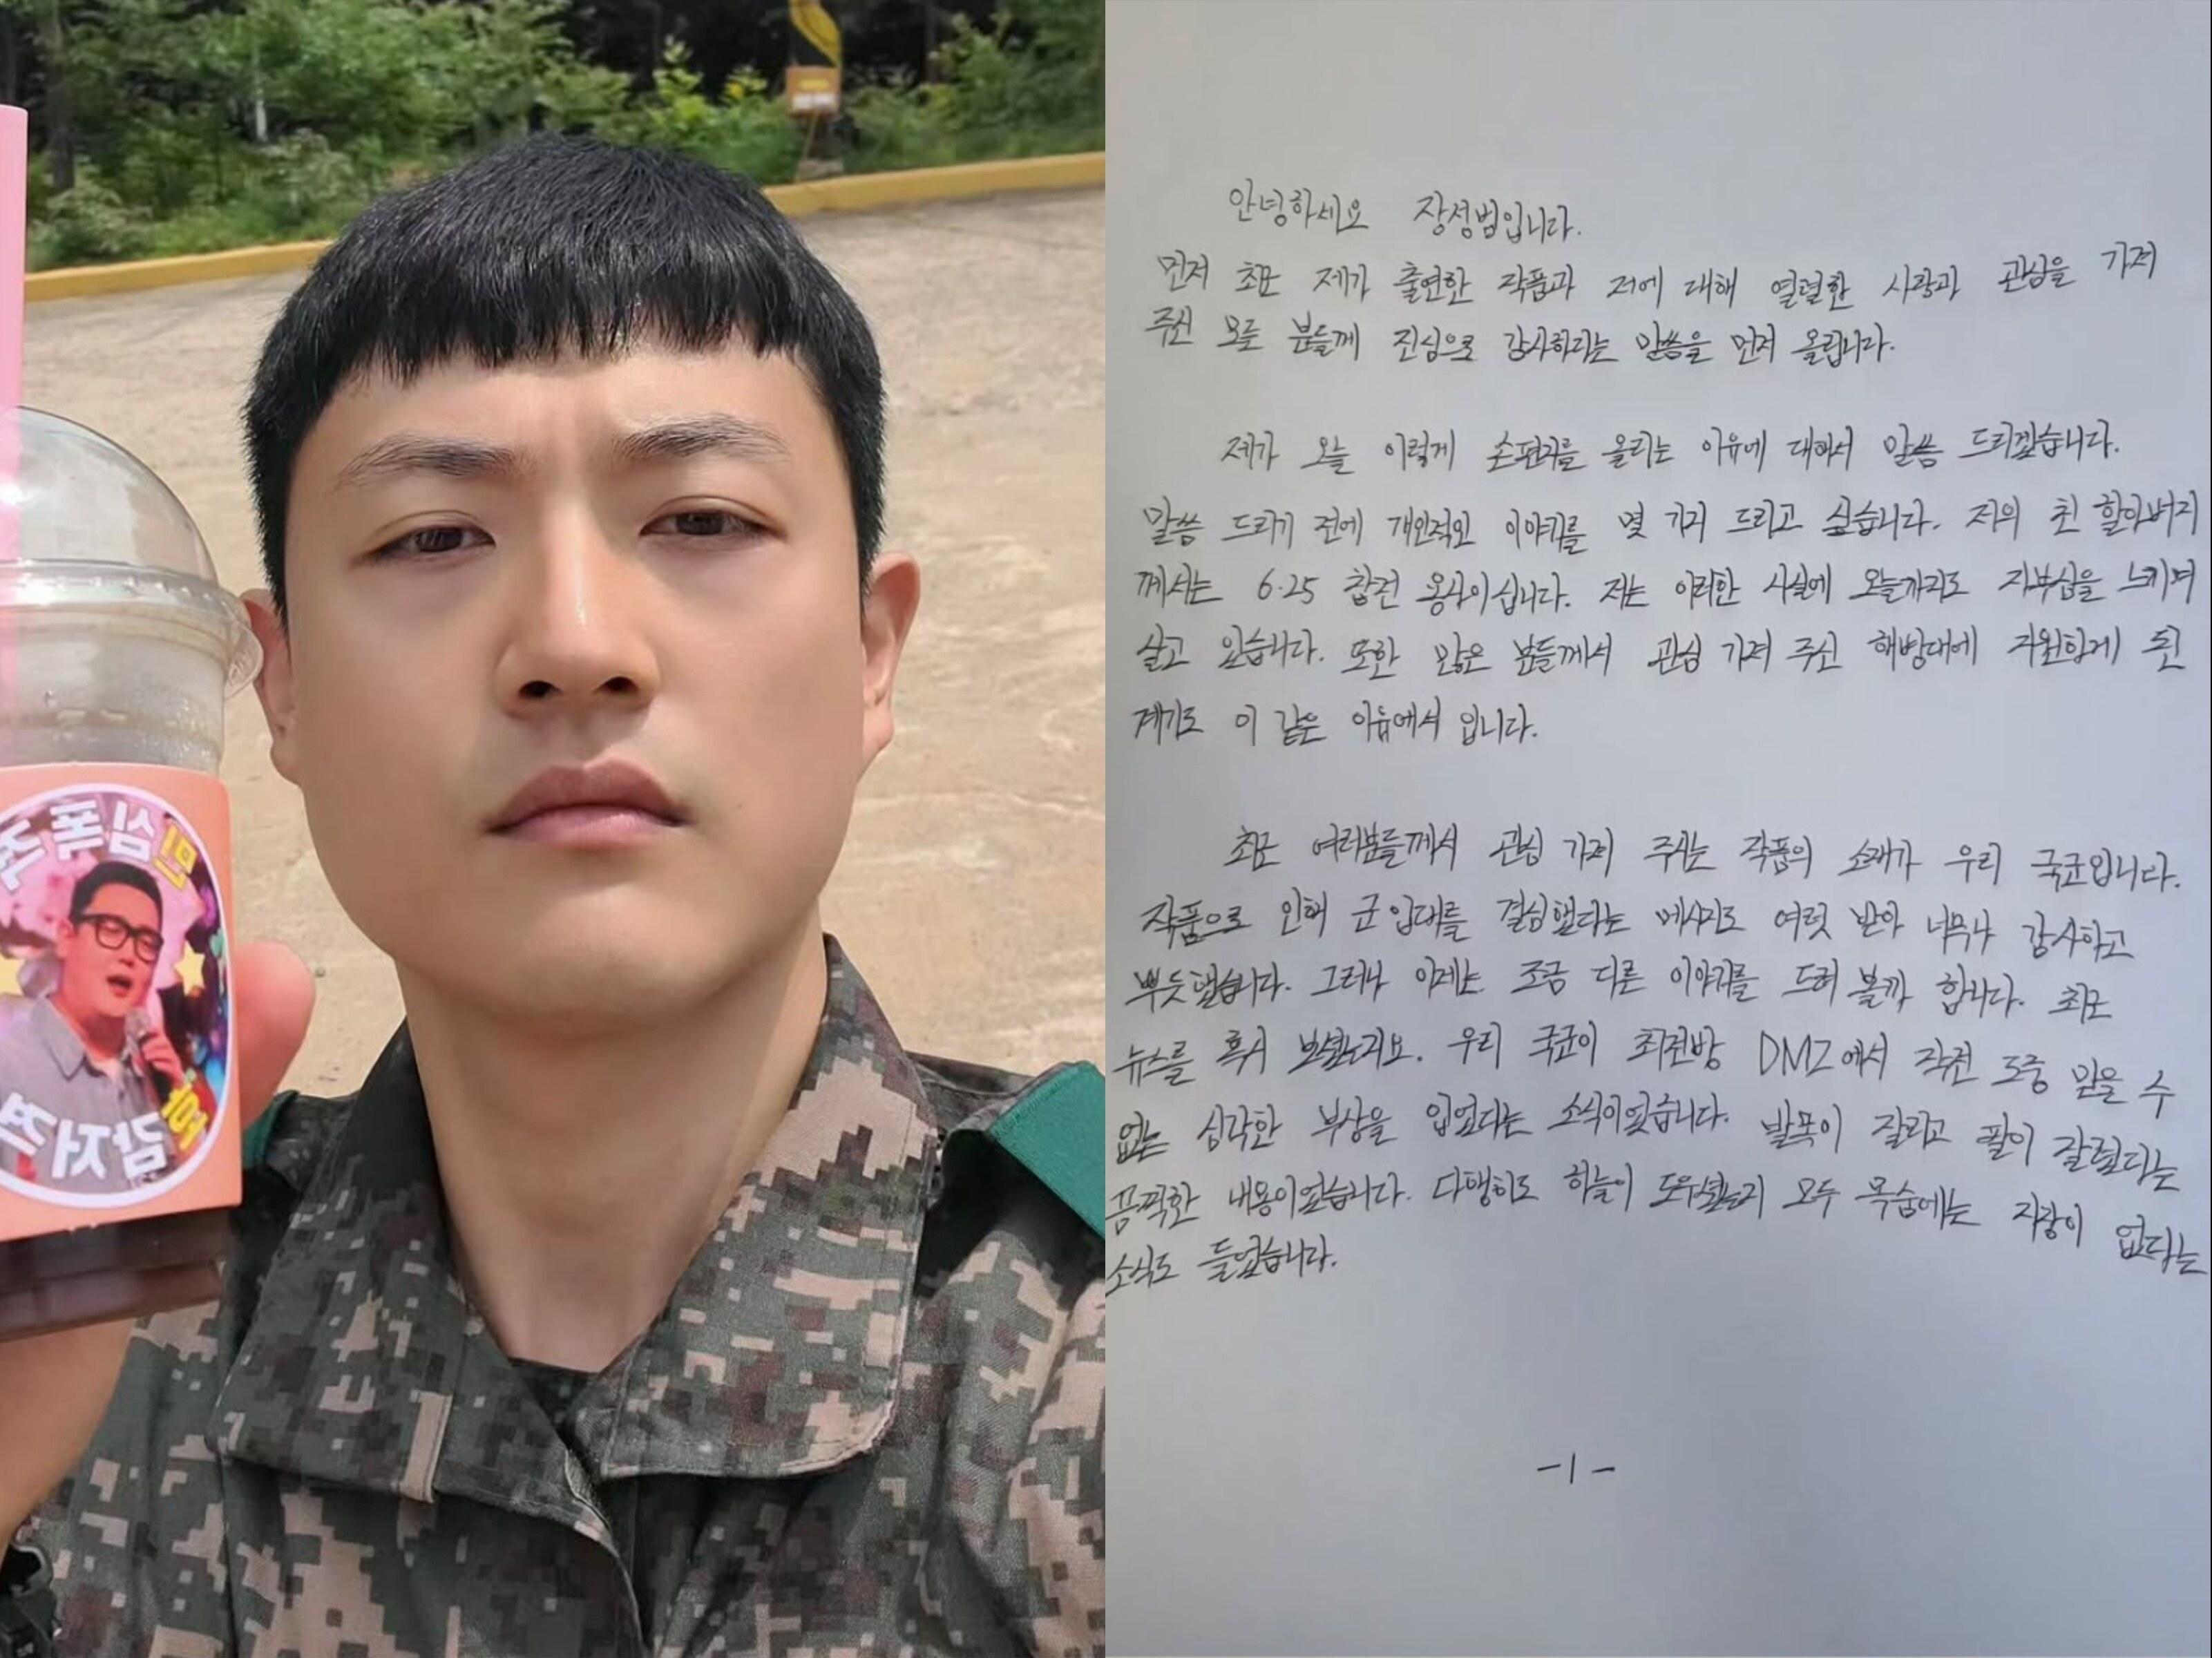 민심폭주
감저격
안녕하세요 장성범입니다.
먼저 최근 제가 출연한 작품과 저에 대해 열렬한 사랑과 관심을 가져
주신 모든 분들께 진심으로 감사하다는 말씀을 먼저 올립니다.
제가 오늘 이렇게 손편지를 올리는 이유에 대해서 말씀 드리겠습니다.
말씀 드리기 전에 개인적인 이야기를 몇 가지 드리고 싶습니다. 저의 친 할아버지
께서는 6·25 참전 용사이십니다. 저는 이러한 사실에 오늘까지도 자부심을 느끼며
살고 있습니다. 또한 많은 분들께서 관심 가져 주신 해병대에 지원하게 된
계기도 이 같은 이유에서 입니다.
최근 여러분들께서 관심 가져 주시는 작품의 소재가 우리 국군입니다.
작품으로 인해 군 입대를 결심했다는 메시지도 여럿 받아 너무나 감사하고
뿌듯했습니다. 그러나 이제는 조금 다른 이야기를 드려 볼까 합니다. 최근
뉴스를 혹시 보셨는지요. 우리 국군이 최전방 DMZ에서 작전 도중 믿을 수
없는 심각한 부상을 입었다는 소식이었습니다. 발목이 잘리고 팔이 잘렸다는
끔찍한 내용이었습니다. 다행히도 하늘이 도우셨는지 모두 목숨에는 지장이 없다는
소식도 들었습니다.
-1-